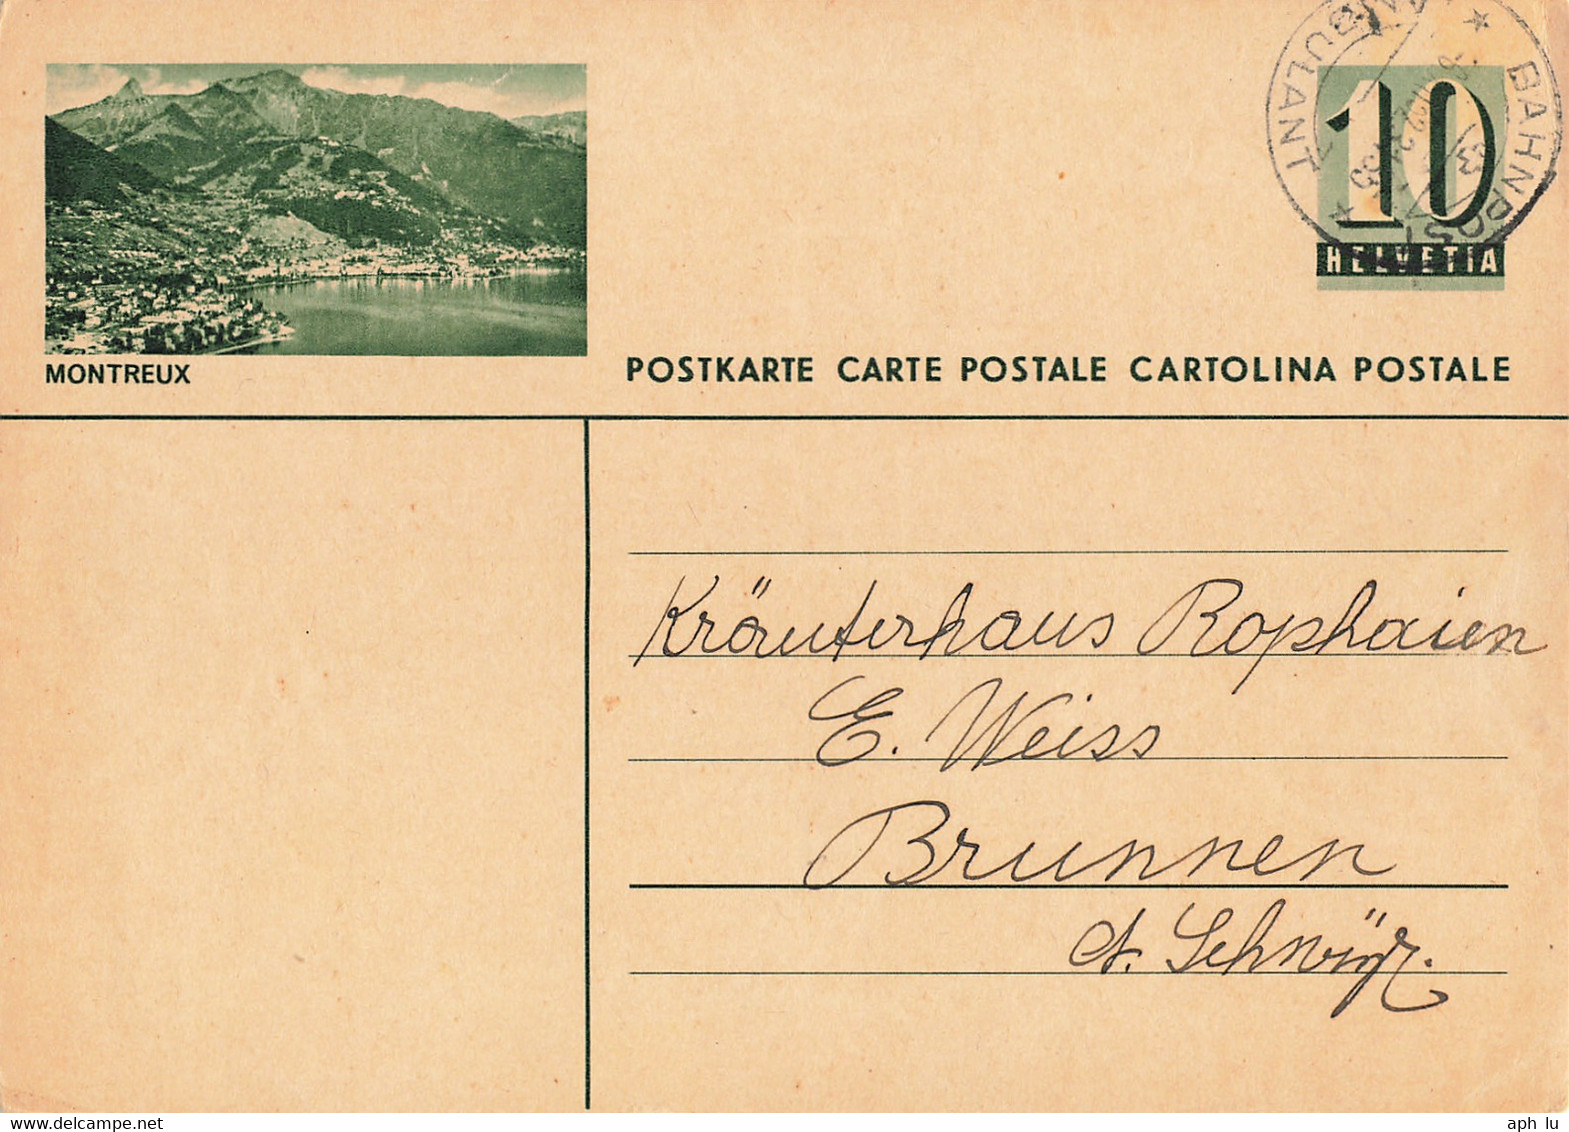 AMBULANT
BAHNPOST
10
HELVETIA
MONTREUX
POSTKARTE CARTE POSTALE CARTOLINA POSTALE
Kräuterhaus Rophaien
E. Weiss
Brunnen
Schwÿz.
www.delcampe.net
aph lu